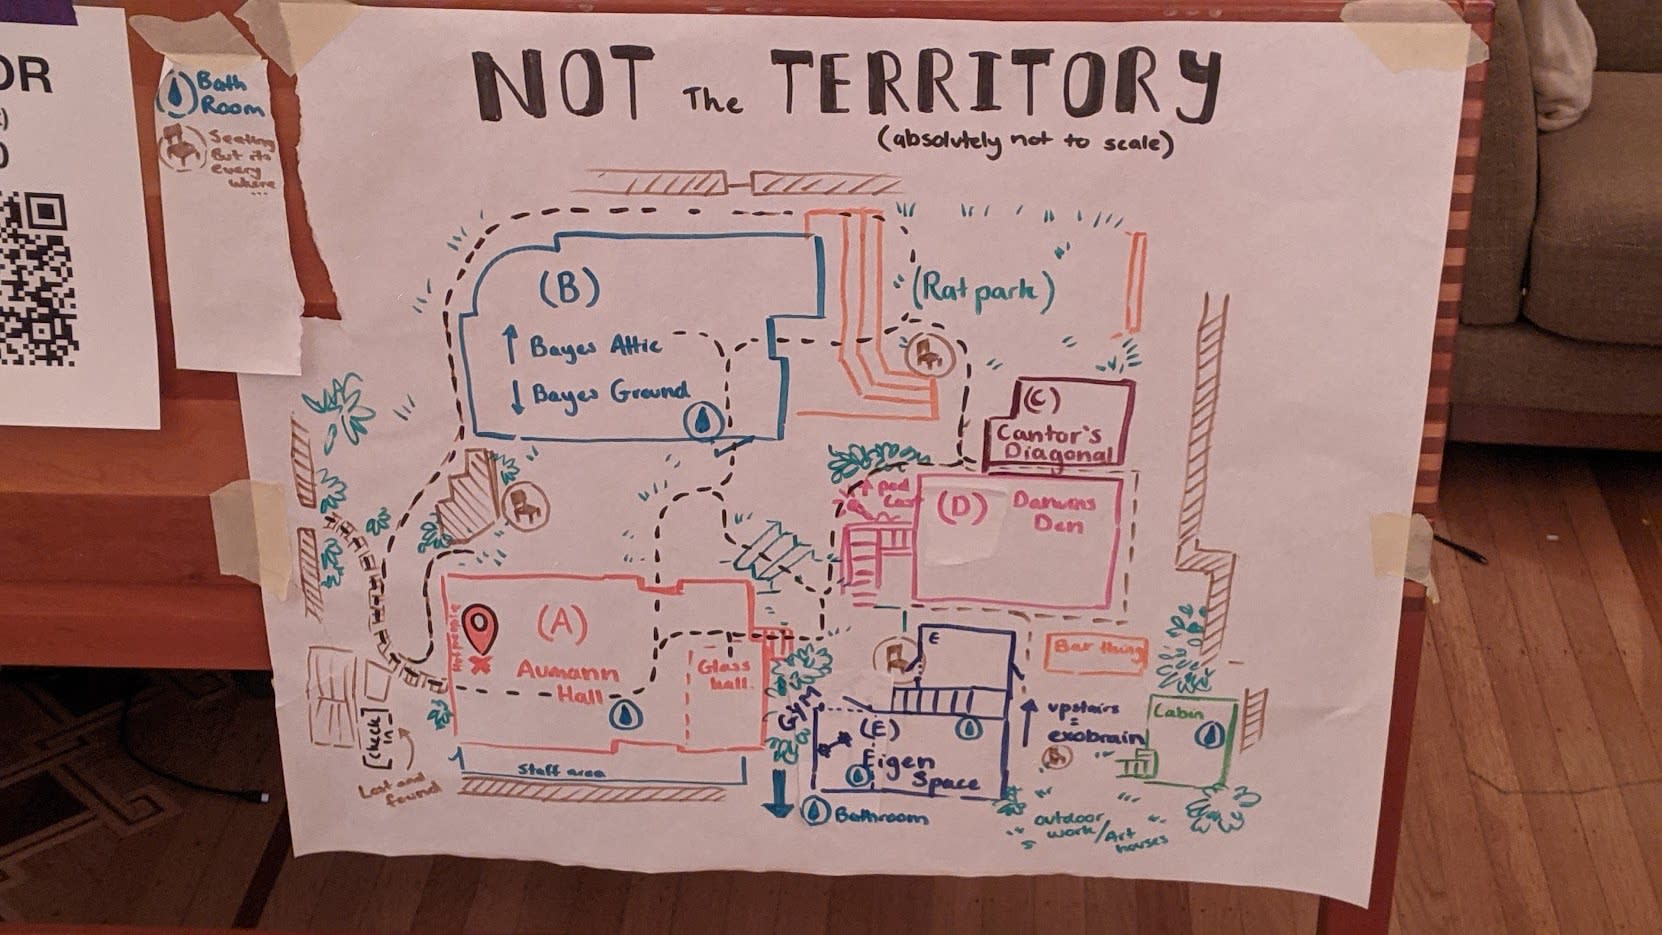 OR
Bath
Room
Seating
But its
every
where
...
NOT The TERRITORY
(absolutely not to scale)
(B)
↑ Bayes Attic
↓ Bayes Ground
(Rat park)
(C)
Cantor's
Diagonal
pod
(D)
Darwins
Den
(A)
Aumann
Hall
Glass
hall
Staff area
[check
in]
Lost and
found
GYM
E
(E)
Eigen
Space
Bathroom
Bar thing
↑ upstairs
=
exobrain
Cabin
outdoor
work/Art
houses